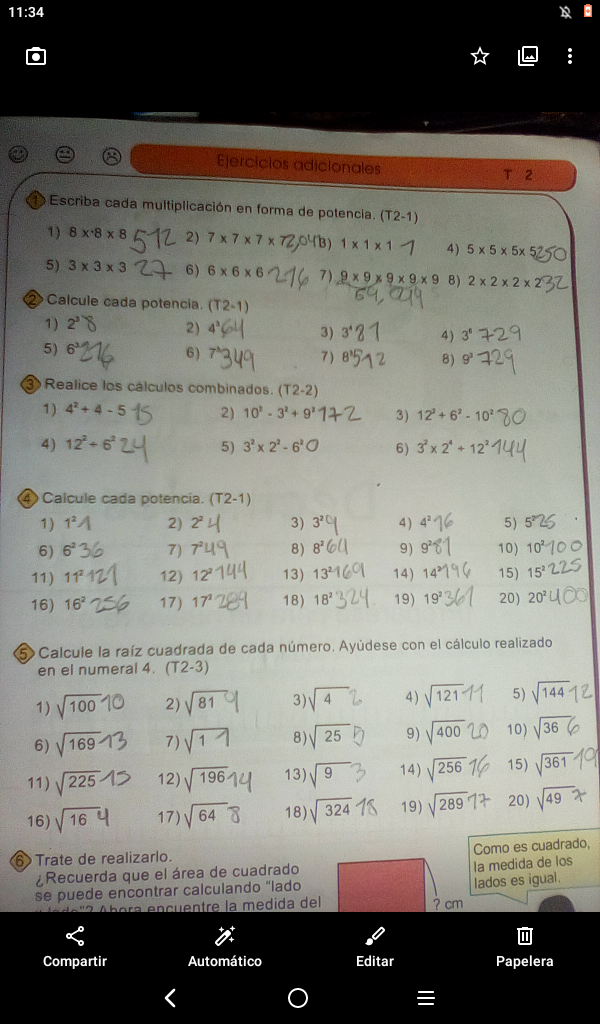 11:34
Ejercicios adicionales T 2
1 Escriba cada multiplicación en forma de potencia. (T2-1)
1) 8 x 8 x 8 512 2) 7 x 7 x 7 x 7 3) 1 x 1 x 1 1 4) 5 x 5 x 5 x 5
5) 3 x 3 x 3 27 6) 6 x 6 x 6 216 7) 9 x 9 x 9 x 9 x 9 8) 2 x 2 x 2 x 2 32
2 Calcule cada potencia. (T2-1)
1) 2³ 8 2) 4³ 64 3) 3⁴ 81 4) 3⁶ 729
5) 6³ 216 6) 7³ 349 7) 8³ 512 8) 9³ 729
3 Realice los cálculos combinados. (T2-2)
1) 4² + 4 - 5 15 2) 10² - 3² + 9² 172 3) 12² + 6² - 10² 80
4) 12² ÷ 6² 24 5) 3² x 2² - 6² 0 6) 3² x 2⁴ ÷ 12² 144
4 Calcule cada potencia. (T2-1)
1) 1² 1 2) 2² 4 3) 3² 9 4) 4² 16 5) 5² 25
6) 6² 36 7) 7² 49 8) 8² 64 9) 9² 81 10) 10² 100
11) 11² 121 12) 12² 144 13) 13² 169 14) 14² 196 15) 15² 225
16) 16² 256 17) 17² 289 18) 18² 324 19) 19² 361 20) 20² 400
5 Calcule la raíz cuadrada de cada número. Ayúdese con el cálculo realizado
en el numeral 4. (T2-3)
1) √100 10 2) √81 9 3) √4 2 4) √121 11 5) √144 12
6) √169 13 7) √1 1 8) √25 5 9) √400 20 10) √36 6
11) √225 15 12) √196 14 13) √9 3 14) √256 16 15) √361 19
16) √16 4 17) √64 8 18) √324 18 19) √289 17 20) √49 7
6 Trate de realizarlo.
¿Recuerda que el área de cuadrado
se puede encontrar calculando "lado
x lado"? Ahora encuentre la medida del
? cm
Como es cuadrado,
la medida de los
lados es igual.
Compartir Automático Editar Papelera